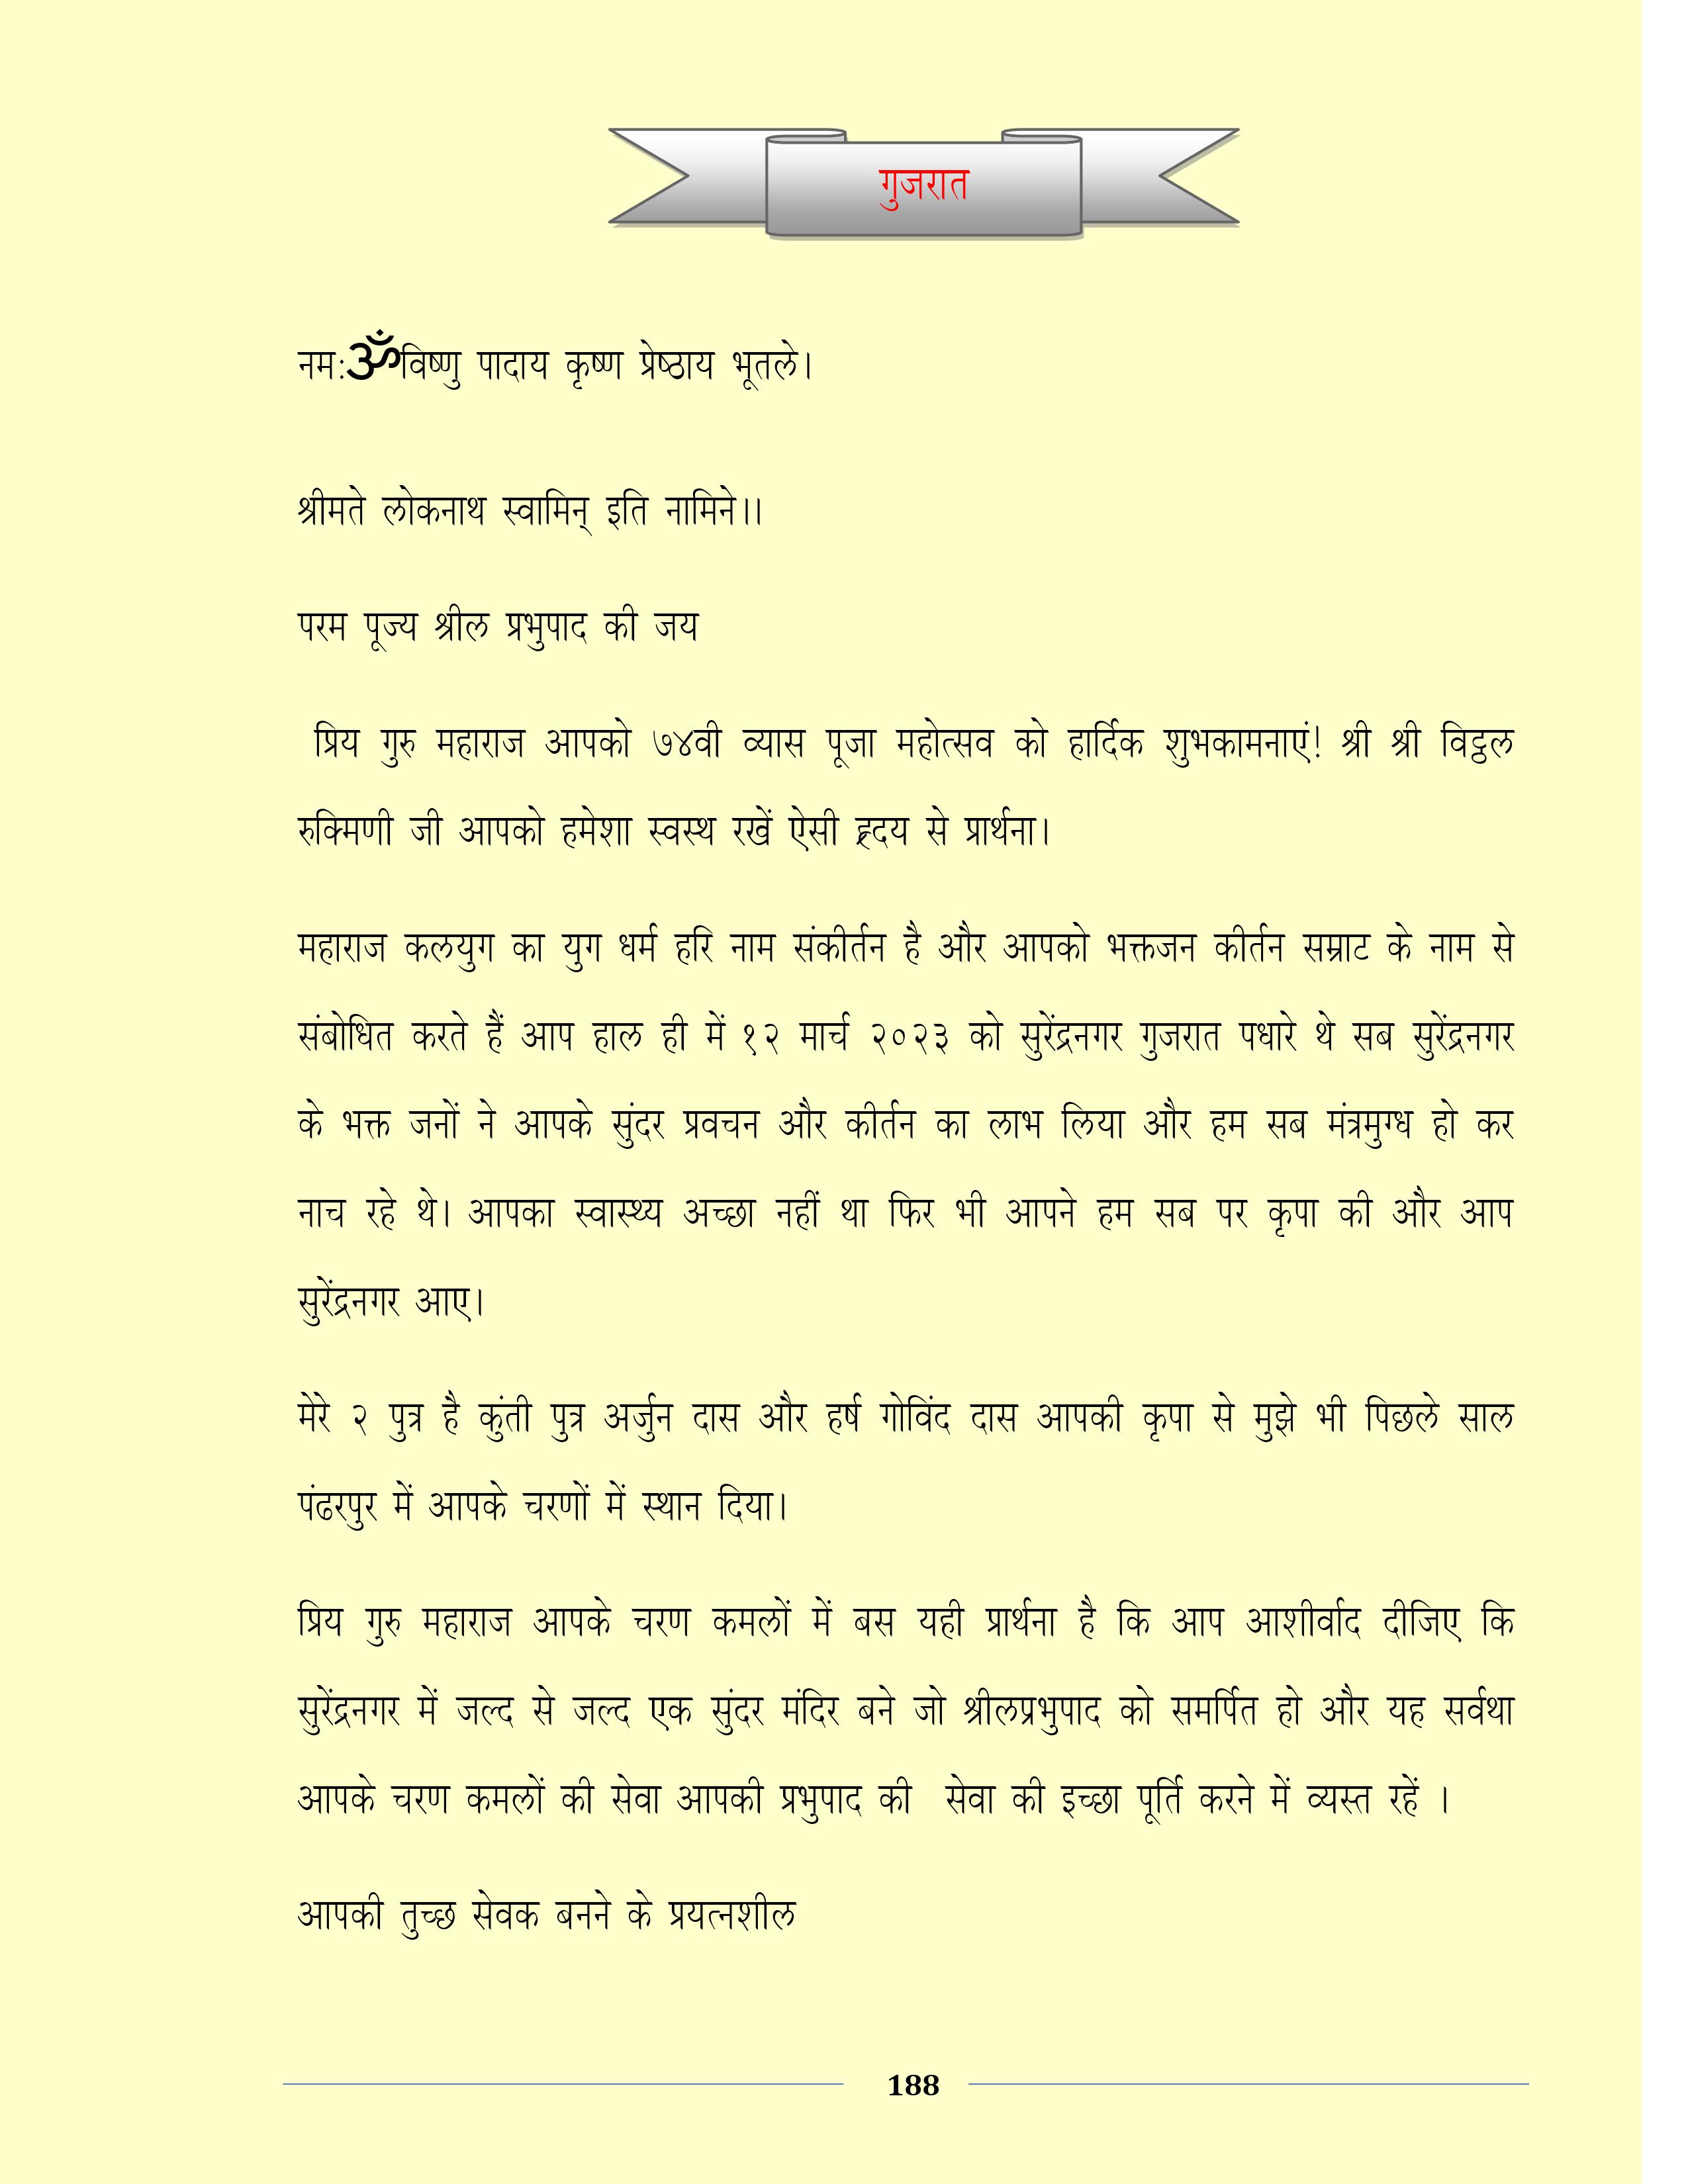 गुजरात
नमः ॐविष्णु पादाय कृष्ण प्रेष्ठाय भूतले।
श्रीमते लोकनाथ स्वामिन् इति नामिने।।
परम पूज्य श्रील प्रभुपाद की जय
प्रिय गुरु महाराज आपको ७४वी व्यास पूजा महोत्सव को हार्दिक शुभकामनाएं! श्री श्री विट्ठल
रुक्मिणी जी आपको हमेशा स्वस्थ रखें ऐसी ह्रदय से प्रार्थना।
महाराज कलयुग का युग धर्म हरि नाम संकीर्तन है और आपको भक्तजन कीर्तन सम्राट के नाम से
संबोधित करते हैं आप हाल ही में १२ मार्च २०२३ को सुरेंद्रनगर गुजरात पधारे थे सब सुरेंद्रनगर
के भक्त जनों ने आपके सुंदर प्रवचन और कीर्तन का लाभ लिया और हम सब मंत्रमुग्ध हो कर
नाच रहे थे। आपका स्वास्थ्य अच्छा नहीं था फिर भी आपने हम सब पर कृपा की और आप
सुरेंद्रनगर आए।
मेरे २ पुत्र है कुंती पुत्र अर्जुन दास और हर्ष गोविंद दास आपकी कृपा से मुझे भी पिछले साल
पंढरपुर में आपके चरणों में स्थान दिया।
प्रिय गुरु महाराज आपके चरण कमलों में बस यही प्रार्थना है कि आप आशीर्वाद दीजिए कि
सुरेंद्रनगर में जल्द से जल्द एक सुंदर मंदिर बने जो श्रीलप्रभुपाद को समर्पित हो और यह सर्वथा
आपके चरण कमलों की सेवा आपकी प्रभुपाद की सेवा की इच्छा पूर्ति करने में व्यस्त रहें ।
आपकी तुच्छ सेवक बनने के प्रयत्नशील
188